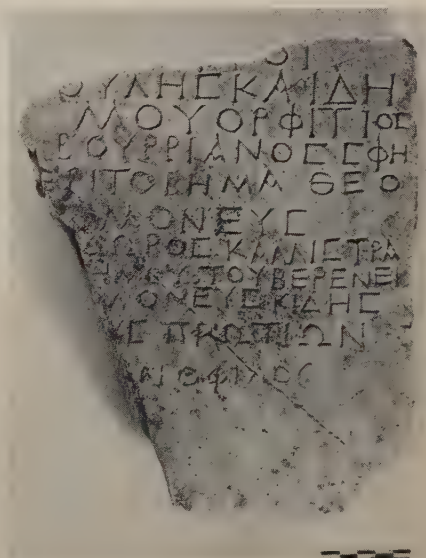 ΟΙ
ΟΥΛΗΣΚΑΙΔΗ
ΜΟΥΟΡΦΙΤΙΟΣ
ΒΟΥΡΡΙΑΝΟΣΣΦΗ
ΕΠΙΤΟΒΗΜΑΘΕΟ
ΜΟΝΕΥΣ
ΔΩΡΟΣΚΑΛΛΙΣΤΡΑ
ΗΜΟΥΣΤΟΥΒΕΡΕΝΕΙΚ
ΜΟΝΕΥΣΚΙΔΗΣ
ΥΣΠΚΩΤΙΩΝ
ΦΙΛΟΣ